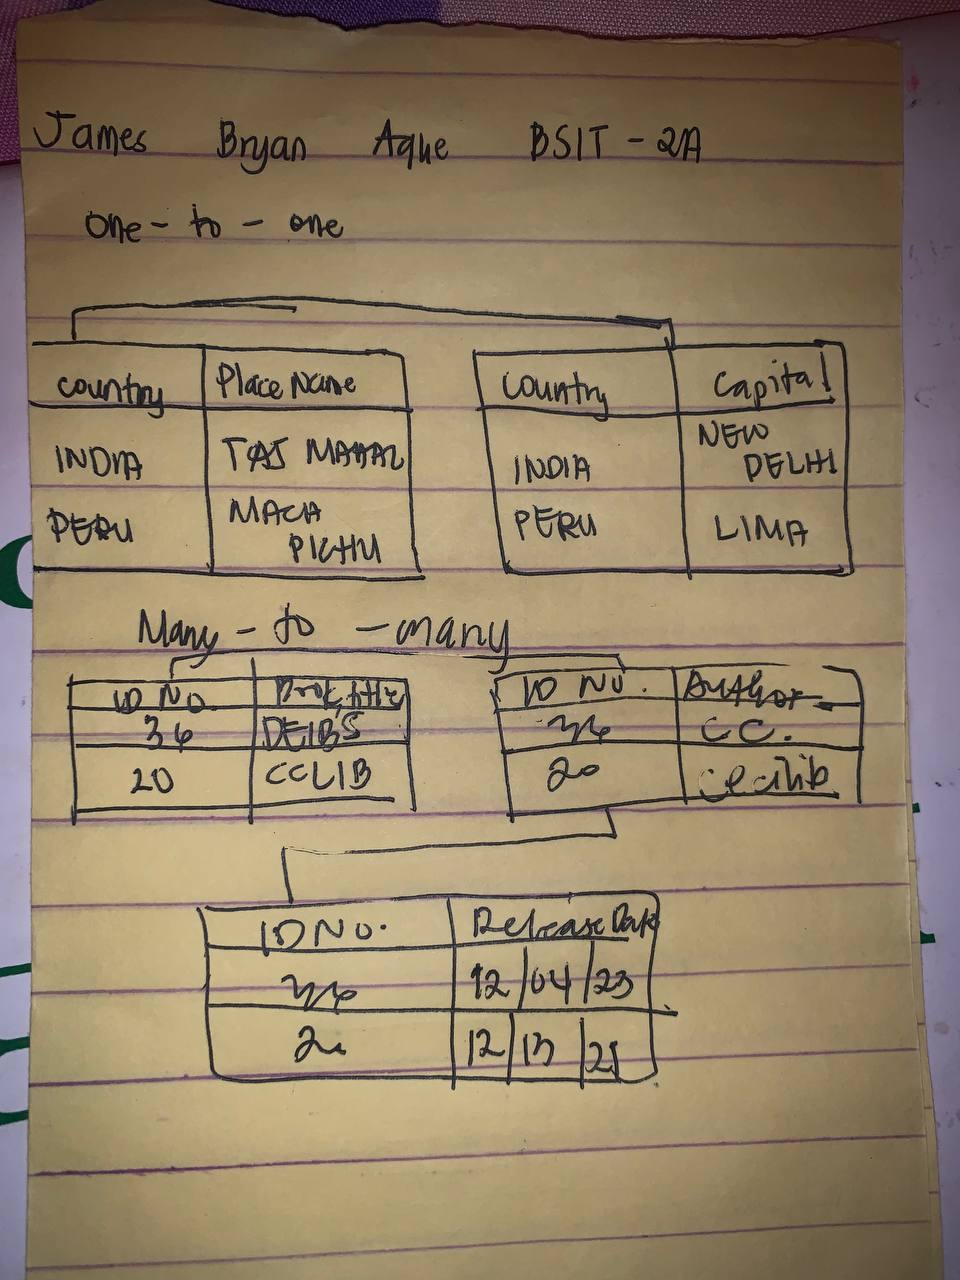 James Bryan Aque BSIT - 2A
one - to - one
country Place Name
INDIA TAJ MAHAL
PERU MACA PICHU
country Capital
INDIA NEW DELHI
PERU LIMA
Many - to - many
ID NO. Book title
36 DEIBS
20 CCLIB
ID NO. Author
36 CC.
20 cecilib
ID NO. Release Date
36 12/04/23
20 12/13